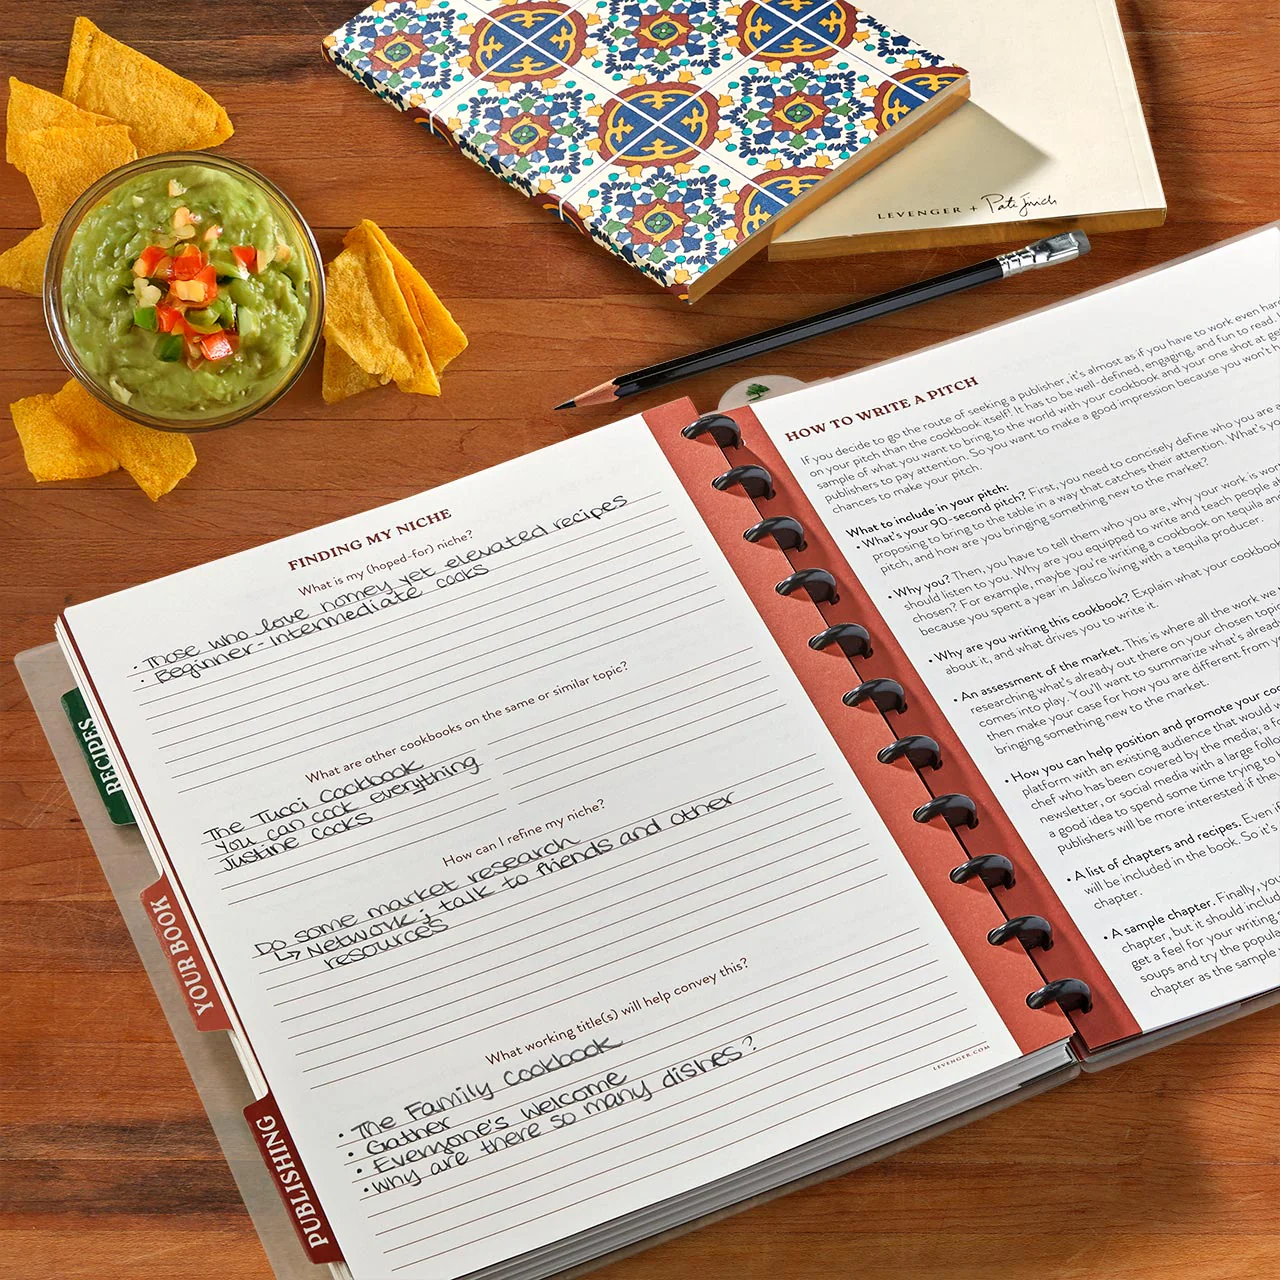 LEVENGER + Pati Jinich
RECIPES
YOUR BOOK
PUBLISHING
FINDING MY NICHE
What is my (hoped-for) niche?
• Those who love homey yet elevated recipes
• Beginner-Intermediate cooks
What are other cookbooks on the same or similar topic?
The Tucci Cookbook
You can cook everything
Justine Cooks
How can I refine my niche?
Do some market research
↳ Network; talk to friends and other
resources
What working title(s) will help convey this?
• The Family Cookbook
• Gather
• Everyone's welcome
• why are there so many dishes?
LEVENGER.COM
HOW TO WRITE A PITCH
If you decide to go the route of seeking a publisher, it's almost as if you have to work even
on your pitch than the cookbook itself! It has to be well-defined, engaging, and fun to read.
sample of what you want to bring to the world with your cookbook and your one shot at
publishers to pay attention. So you want to make a good impression because you won't
chances to make your pitch.
What to include in your pitch:
• What's your 90-second pitch? First, you need to concisely define who you are
proposing to bring to the table in a way that catches their attention. What's
pitch, and how are you bringing something new to the market?
• Why you? Then, you have to tell them who you are, why your work is
should listen to you. Why are you equipped to write and teach people
chosen? For example, maybe you're writing a cookbook on tequila
because you spent a year in Jalisco living with a tequila producer.
• Why are you writing this cookbook? Explain what your cookbook
about it, and what drives you to write it.
• An assessment of the market. This is where all the work we
researching what's already out there on your chosen
comes into play. You'll want to summarize what's
then make your case for how you are different from
bringing something new to the market.
• How you can help position and promote your
platform with an existing audience that would
chef who has been covered by the media; a
newsletter, or social media with a large
a good idea to spend some time trying to
publishers will be more interested if
• A list of chapters and recipes. Even
will be included in the book. So
chapter.
• A sample chapter. Finally,
chapter, but it should
get a feel for your writing
soups and try the
chapter as the sample